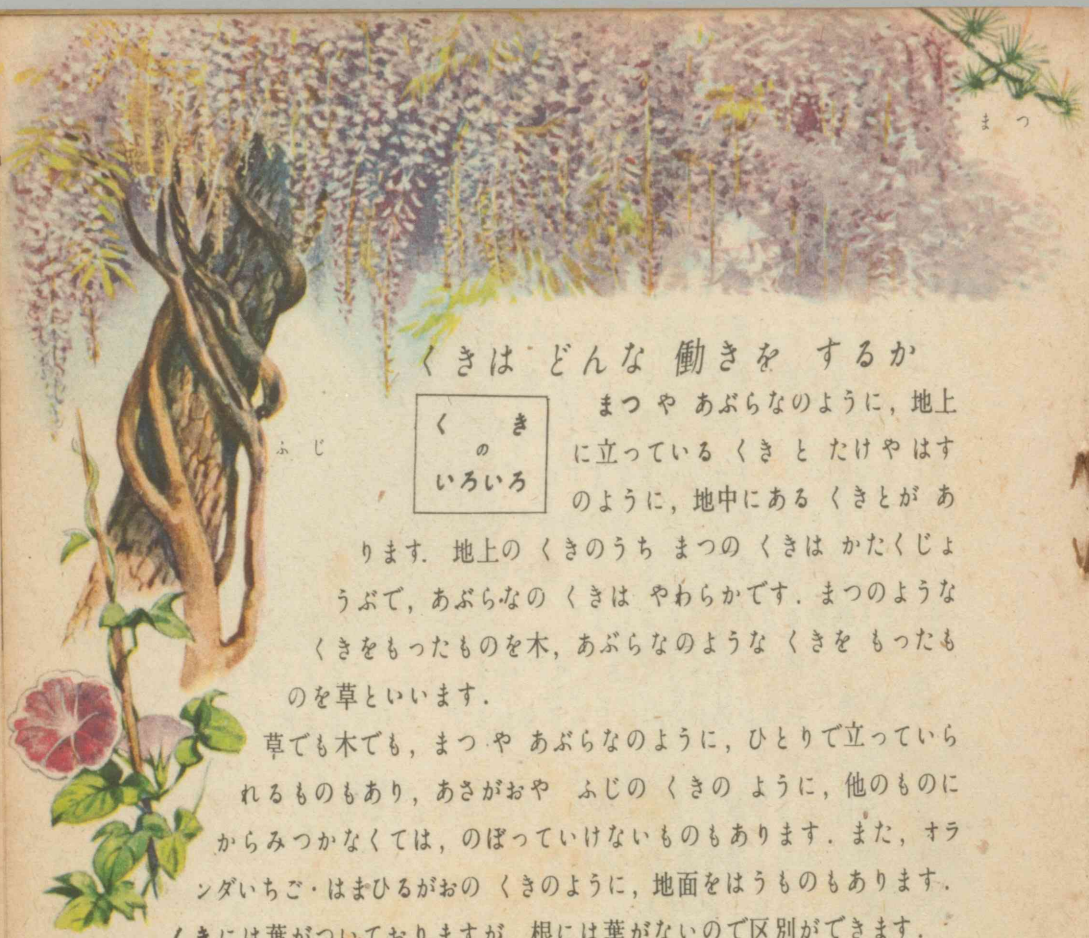 まつ
くきは どんな 働きを するか
くき
の
いろいろ
まつ や あぶらなのように, 地上
に立っている くき と たけ や はす
のように, 地中にある くきとが あ
ります. 地上の くきのうち まつの くきは かたくじょ
うぶで, あぶらなの くきは やわらかです. まつのような
くきをもったものを木, あぶらなのような くきを もったも
のを草といいます.
ふじ
草でも木でも, まつ や あぶらなのように, ひとりで立っていら
れるものもあり, あさがおや ふじの くきの ように, 他のものに
からみつかなくては, のぼっていけないものもあります. また, オラ
ンダいちご・はまひるがおの くきのように, 地面をはうものもあります.
くきには葉がついておりますが, 根には葉がないので区別ができます.